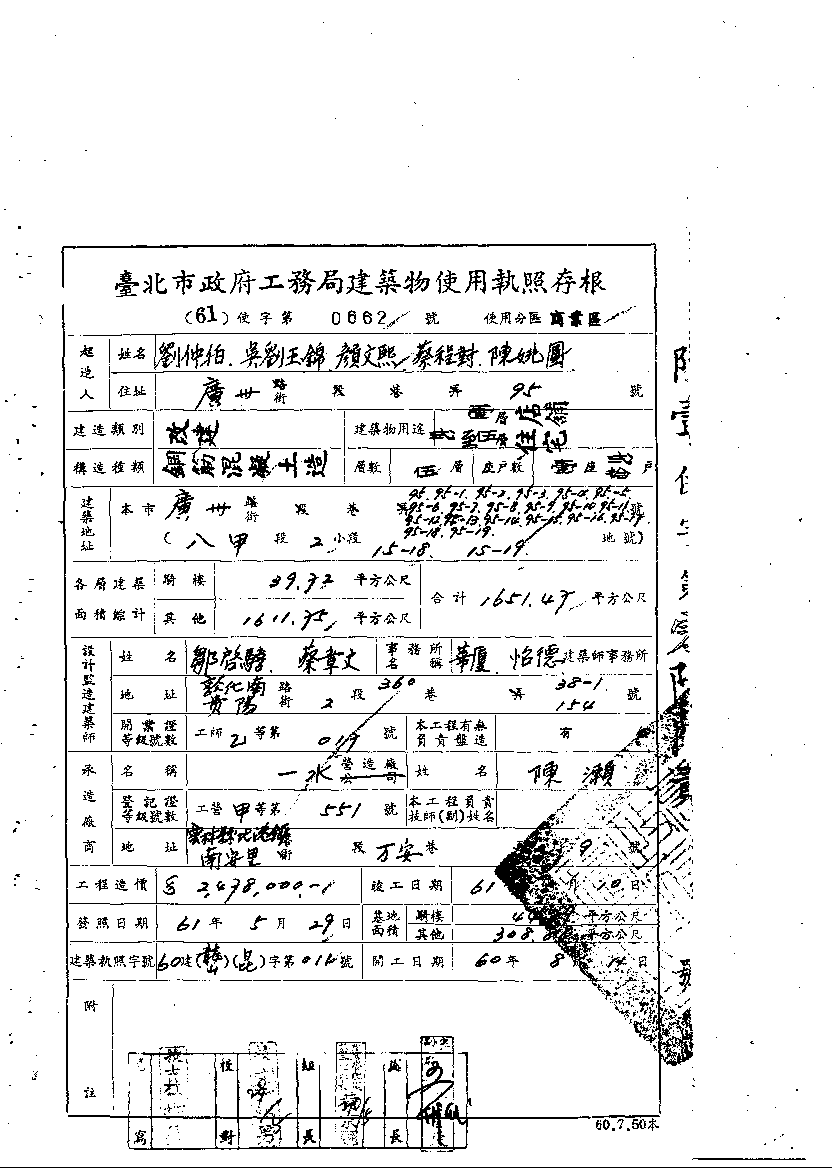 臺北市政府工務局建築物使用執照存根
(61)使字第 0662 號 使用分區 商業區
起造人 姓名 劉仲伯、吳劉玉錦 顏文熙 蔡程對、陳姚圓
住址 廣州 路街 段 巷 弄 95 號
建造類別 改建 建築物用途 店舖 住宅
構造種類 鋼筋混凝土造 層數 伍 層 座戶數 座 戶
建築地址 本市 廣州 路街 段 巷 弄 95、95-1、95-2、95-3、95-4、95-5、
95-6、95-7、95-8、95-9、95-10、95-11、號
95-12、95-13、95-14、95-15、95-16、95-17、
95-18、95-19、
(八甲 段 2 小段 15-18、 15-19、 地號)
各層建築面積綜計 騎樓 39.72 平方公尺 合計 1651.47 平方公尺
其他 1611.75 平方公尺
設計監造建築師 姓名 蔡章文 事務所名稱 華廈 怡德 建築師事務所
地址 敦化南 貴陽 路街 2 段 360 巷 弄 38-1 154 號
開業證等級號數 工師 乙 等第 019 號 本工程有無負責監造 有
承造廠商 名稱 一水 營造廠公司 姓名 陳瀨
登記證等級號數 工營 甲 等第 551 號 本工程負責技師(副)姓名
地址 雲林縣北港鎮南安里 街 段 万安 巷 9 號
工程造價 $ 2,478,000.-1 竣工日期 61 月 10 日
發照日期 61 年 5 月 29 日 基地面積 騎樓 平方公尺
其他 平方公尺
建築執照字號 60 建( )(昆)字第 014 號 開工日期 60 年 8 14 日
附註
寫 校對 組長 長
60.7.50本